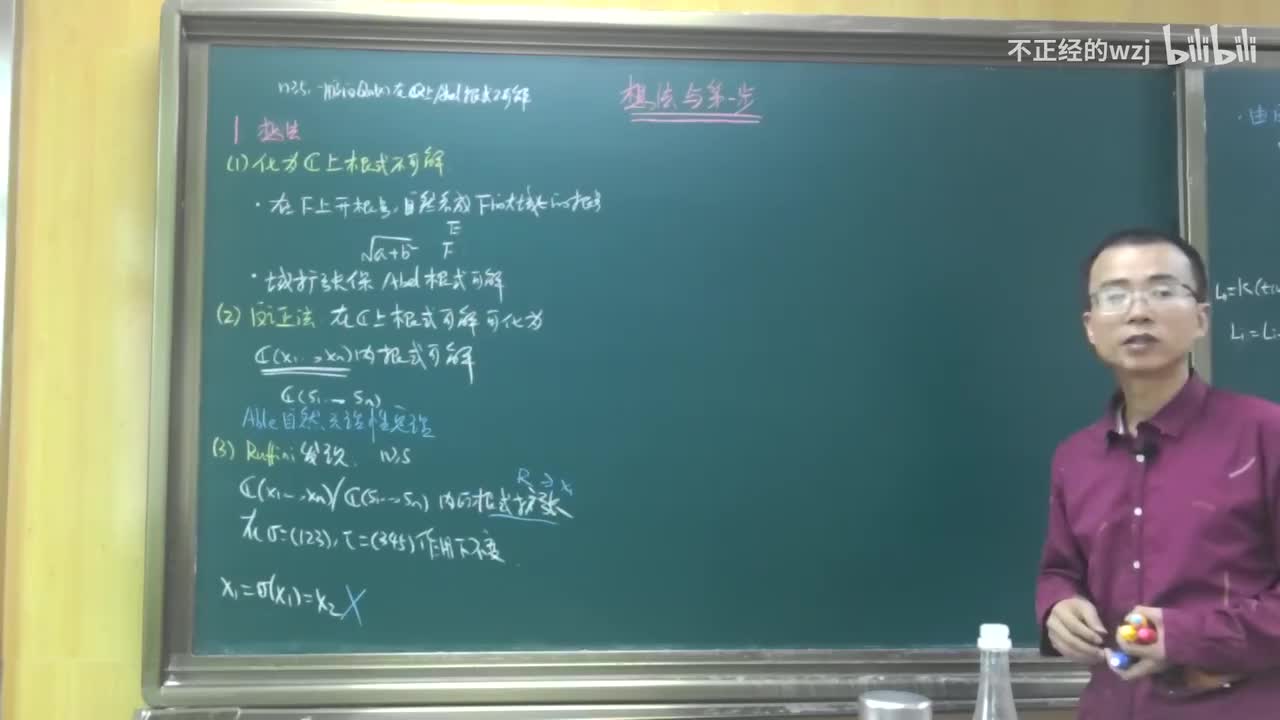 不正经的wzj bilibili
想法与第一步
n≥5, 一般的 在 上Abel根式不可解
1 想法
(1) 化为ℂ上根式不可解
· 在F上开根号,自然系数F的大域E的根号
E
√a+b² F
· 域扩张保Abel根式可解
(2) 反证法 在ℂ上根式可解可化为
ℂ(x₁…,xₙ)内根式可解
ℂ(s₁…sₙ)
Able自然无理性定理
(3) Ruffini发现. n≥5
R∋x₁
ℂ(x₁…,xₙ)/ℂ(s₁…,sₙ)内的根式扩张
在σ=(123),τ=(345)作用下不变
x₁=σ(x₁)=x₂ X
L₀=K(
L₁=L